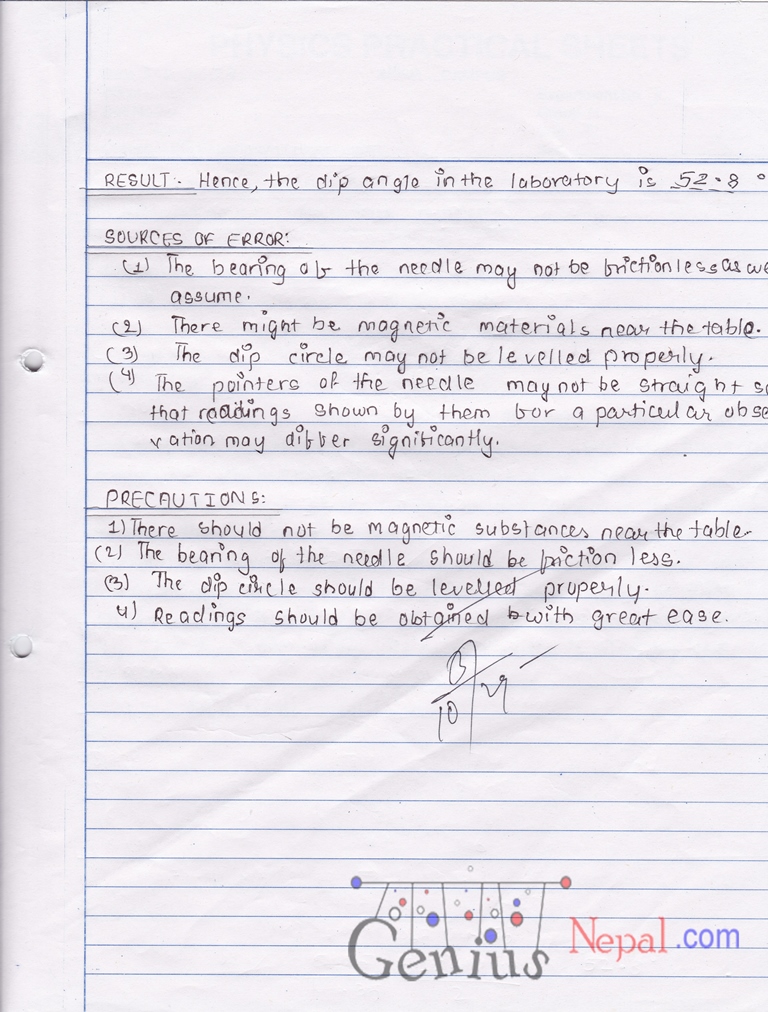 RESULT:- Hence, the dip angle in the laboratory is 52.8°
SOURCES OF ERROR:
(1) The bearing of the needle may not be frictionless as we
assume.
(2) There might be magnetic materials near the table.
(3) The dip circle may not be levelled properly.
(4) The pointers of the needle may not be straight so
that readings shown by them for a particular obse
vation may differ significantly.
PRECAUTIONS:
1) There should not be magnetic substances near the table.
(2) The bearing of the needle should be friction less.
(3) The dip circle should be levelled properly.
4) Readings should be obtained with great ease.
10 29
Genius Nepal.com